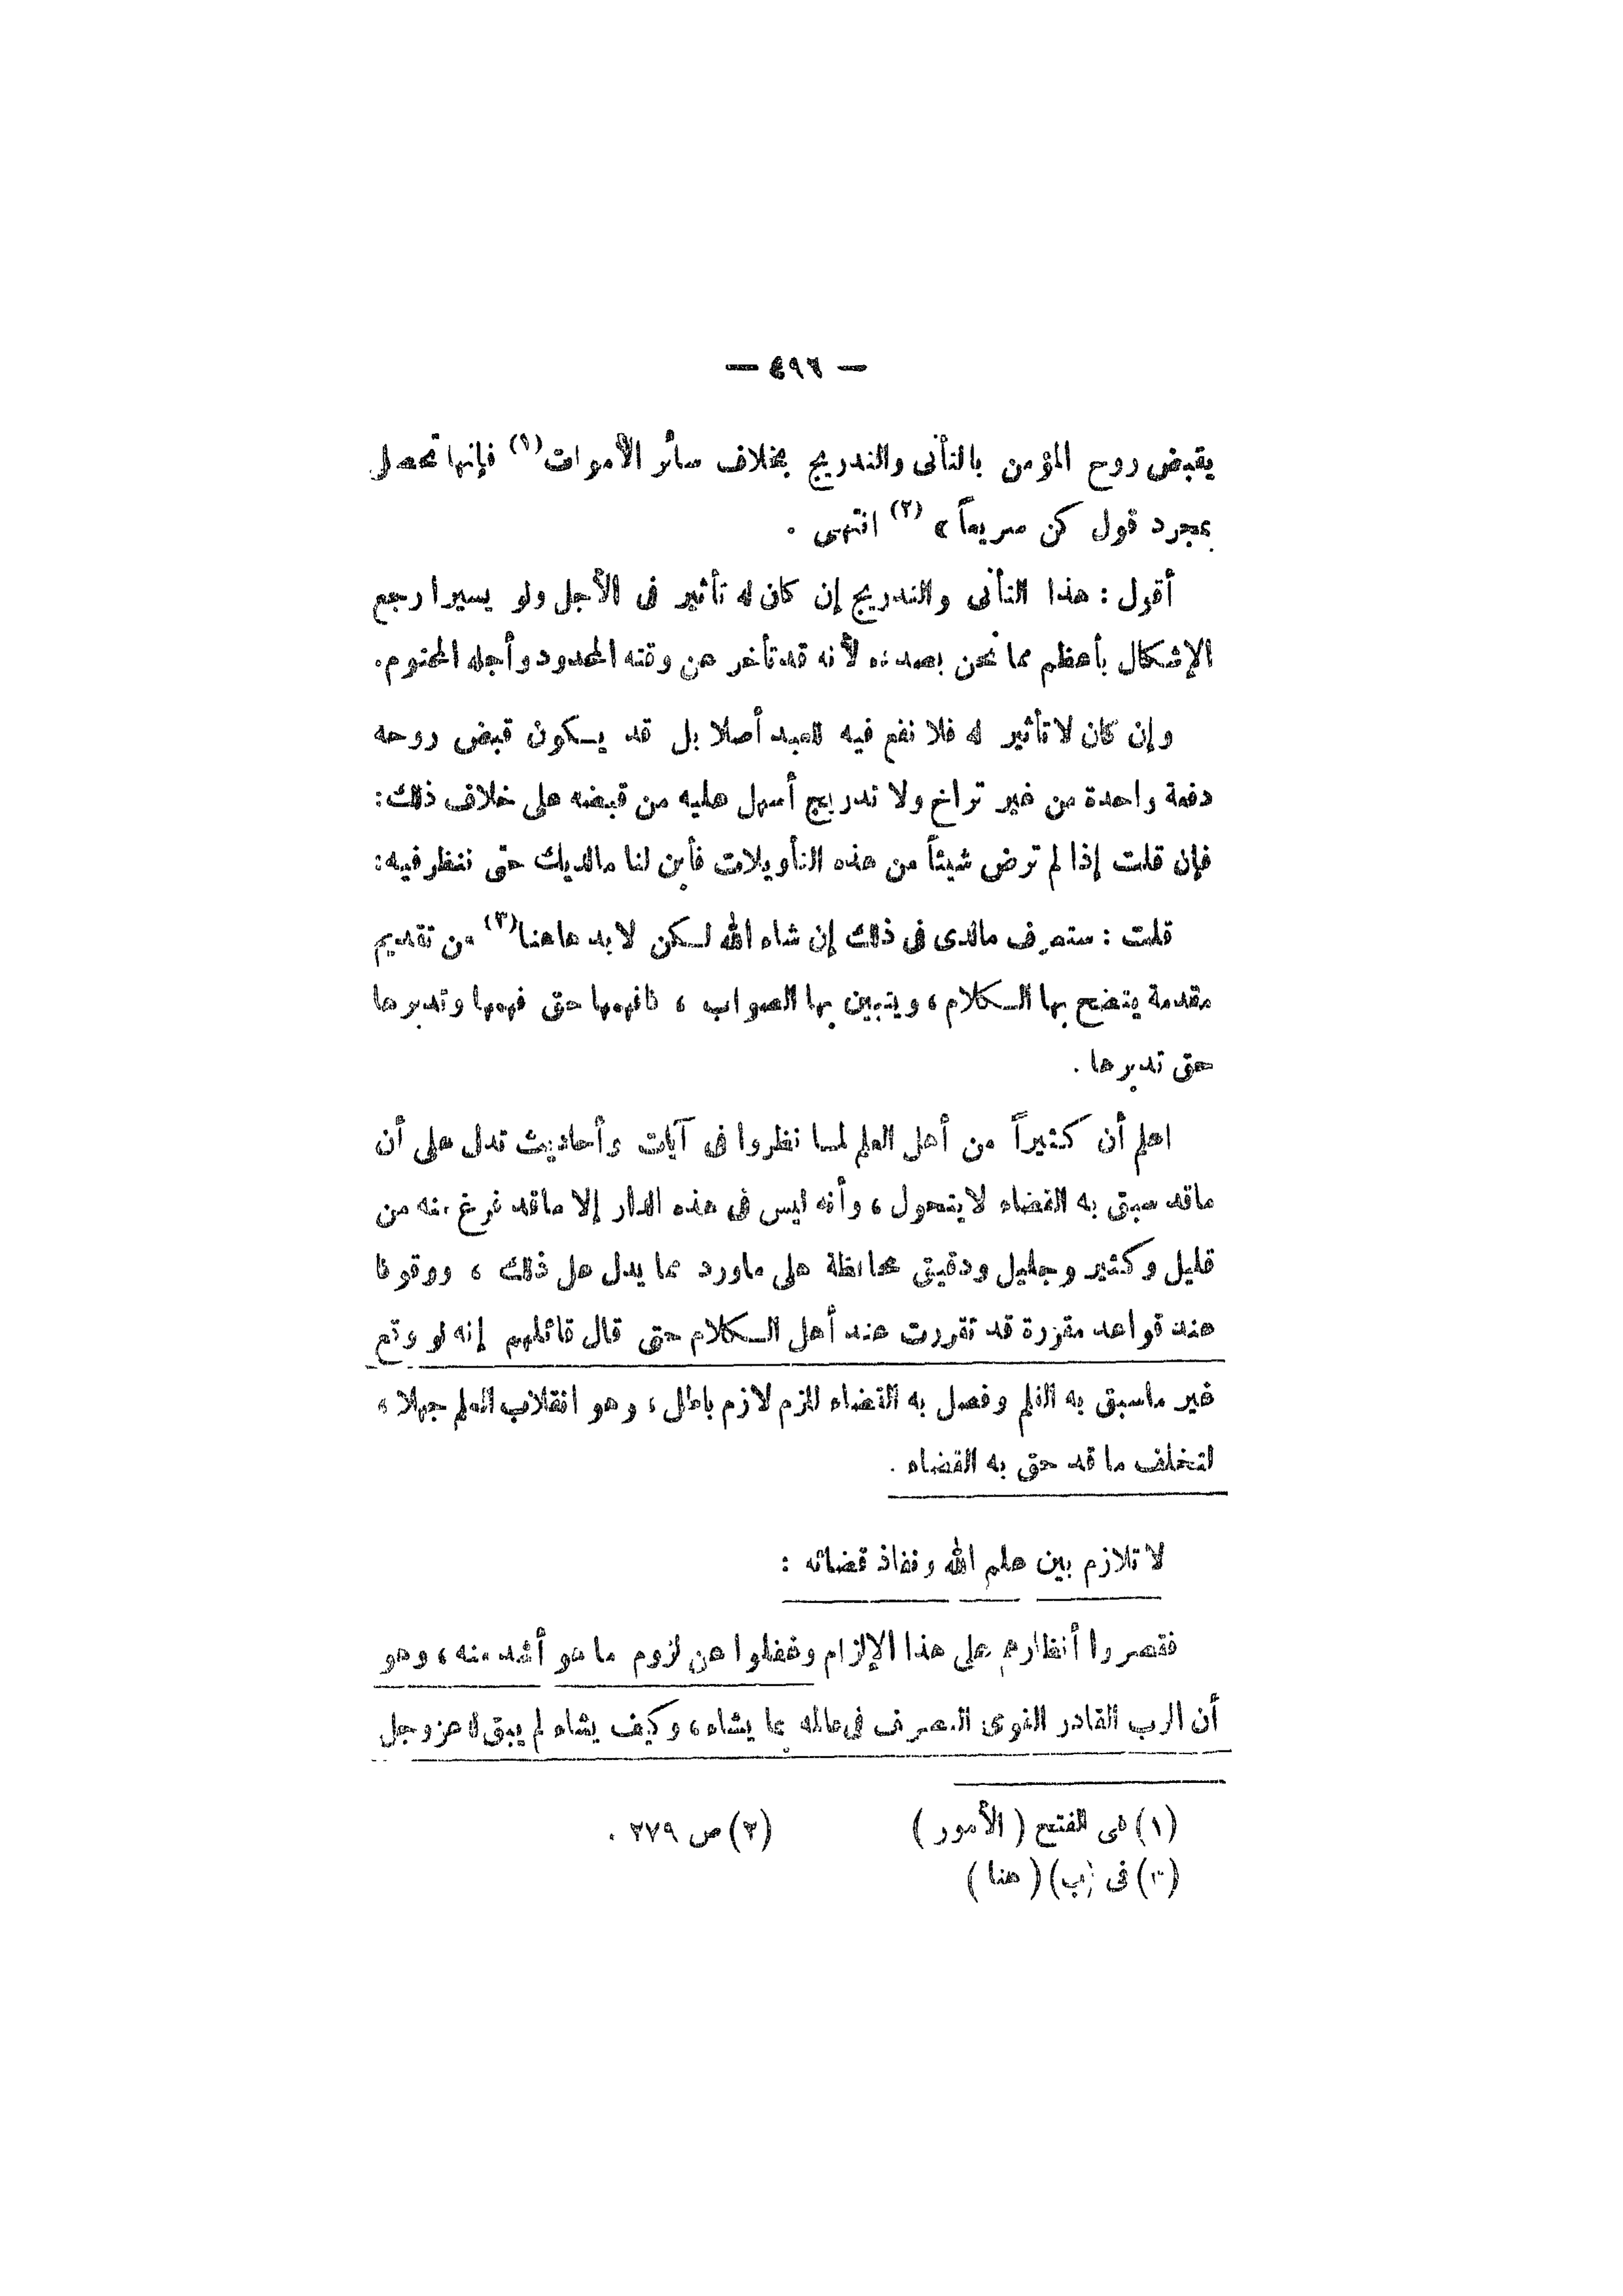 — ٤٩٦ —
يقبض روح المؤمن بالتأنى والتدريج بخلاف سائر الأموات(١) فإنها تحصل
بمجرد قول كن سريعاً » (٢) انتهى .
أقول : هذا التأنى والتدريج إن كان له تأثير فى الأجل ولو يسيرا رجع
الإشكال بأعظم مما نحن بصدده لأنه قد تأخر عن وقته المحدود وأجله المحتوم.
وإن كان لا تأثير له فلا نفع فيه للعبد أصلا بل قد يكون قبض روحه
دفعة واحدة من غير تراخ ولا تدريج أسهل عليه من قبضه على خلاف ذلك:
فإن قلت إذا لم ترض شيئاً من هذه التأويلات فأبن لنا مالديك حتى ننظر فيه:
قلت : ستعرف مالدى فى ذلك إن شاء الله لكن لابد هاهنا(٣) من تقديم
مقدمة يتضح بها الكلام ، ويتبين بها الصواب ، فافهمها حق فهمها وتدبرها
حق تدبرها .
اعلم أن كثيراً من أهل العلم لما نظروا فى آيات وأحاديث تدل على أن
ماقد سبق به القضاء لايتحول ، وأنه ليس فى هذه الدار إلا ماقد فرغ منه من
قليل وكثير وجليل ودقيق محافظة على ماورد مما يدل على ذلك ، ووقوفا
عند قواعد مقررة قد تقررت عند أهل الكلام حتى قال قائلهم إنه لو وقع
غير ماسبق به القلم وفصل به القضاء للزم لازم باطل ، وهو انقلاب العلم جهلا ،
لتخلف ما قد حق به القضاء .
لا تلازم بين علم الله ونفاذ قضائه :
فقصروا أنظارهم على هذا الإلزام وغفلوا عن لزوم ما هو أشد منه ، وهو
أن الرب القادر القوى المتصرف فى عالمه بما يشاء ، وكيف يشاء لم يبق له عز وجل
(١) فى الفتح ( الأمور ) (٢) ص ٣٧٩ .
(٣) فى (ب) ( هنا )